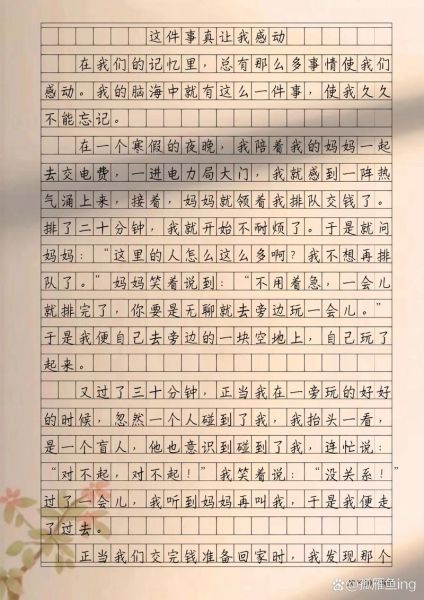 这件事真让我感动
在我们的记忆里，总有那么多事情使我们
感动。我的脑海中就有这么一件事，使我久久
不能忘记。
在一个寒假的夜晚，我陪着我的妈妈一起
去交电费，一进电力局大门，我就感到一阵热
气涌上来，接着，妈妈就领着我排队交钱了。
排了二十分钟，我就开始不耐烦了。于是就问
妈妈：“这里的人怎么这么多啊？我不想再排
队了。”妈妈笑着说到：“不用着急，一会儿
就排完了，你要是无聊就去旁边玩一会儿。”
于是我便自己去旁边的一块空地上，自己玩了
起来。
又过了三十分钟，正当我在一旁玩的好好
的时候，忽然一个人碰到了我，我抬头一看，
是一个盲人，他也意识到碰到了我，连忙说：
“对不起，对不起！”我笑着说：“没关系！”
过了一会儿，我听到妈妈再叫我，于是我便走
了过去。
正当我们交完钱准备回家时，我发现那个
@孤雁鱼ing